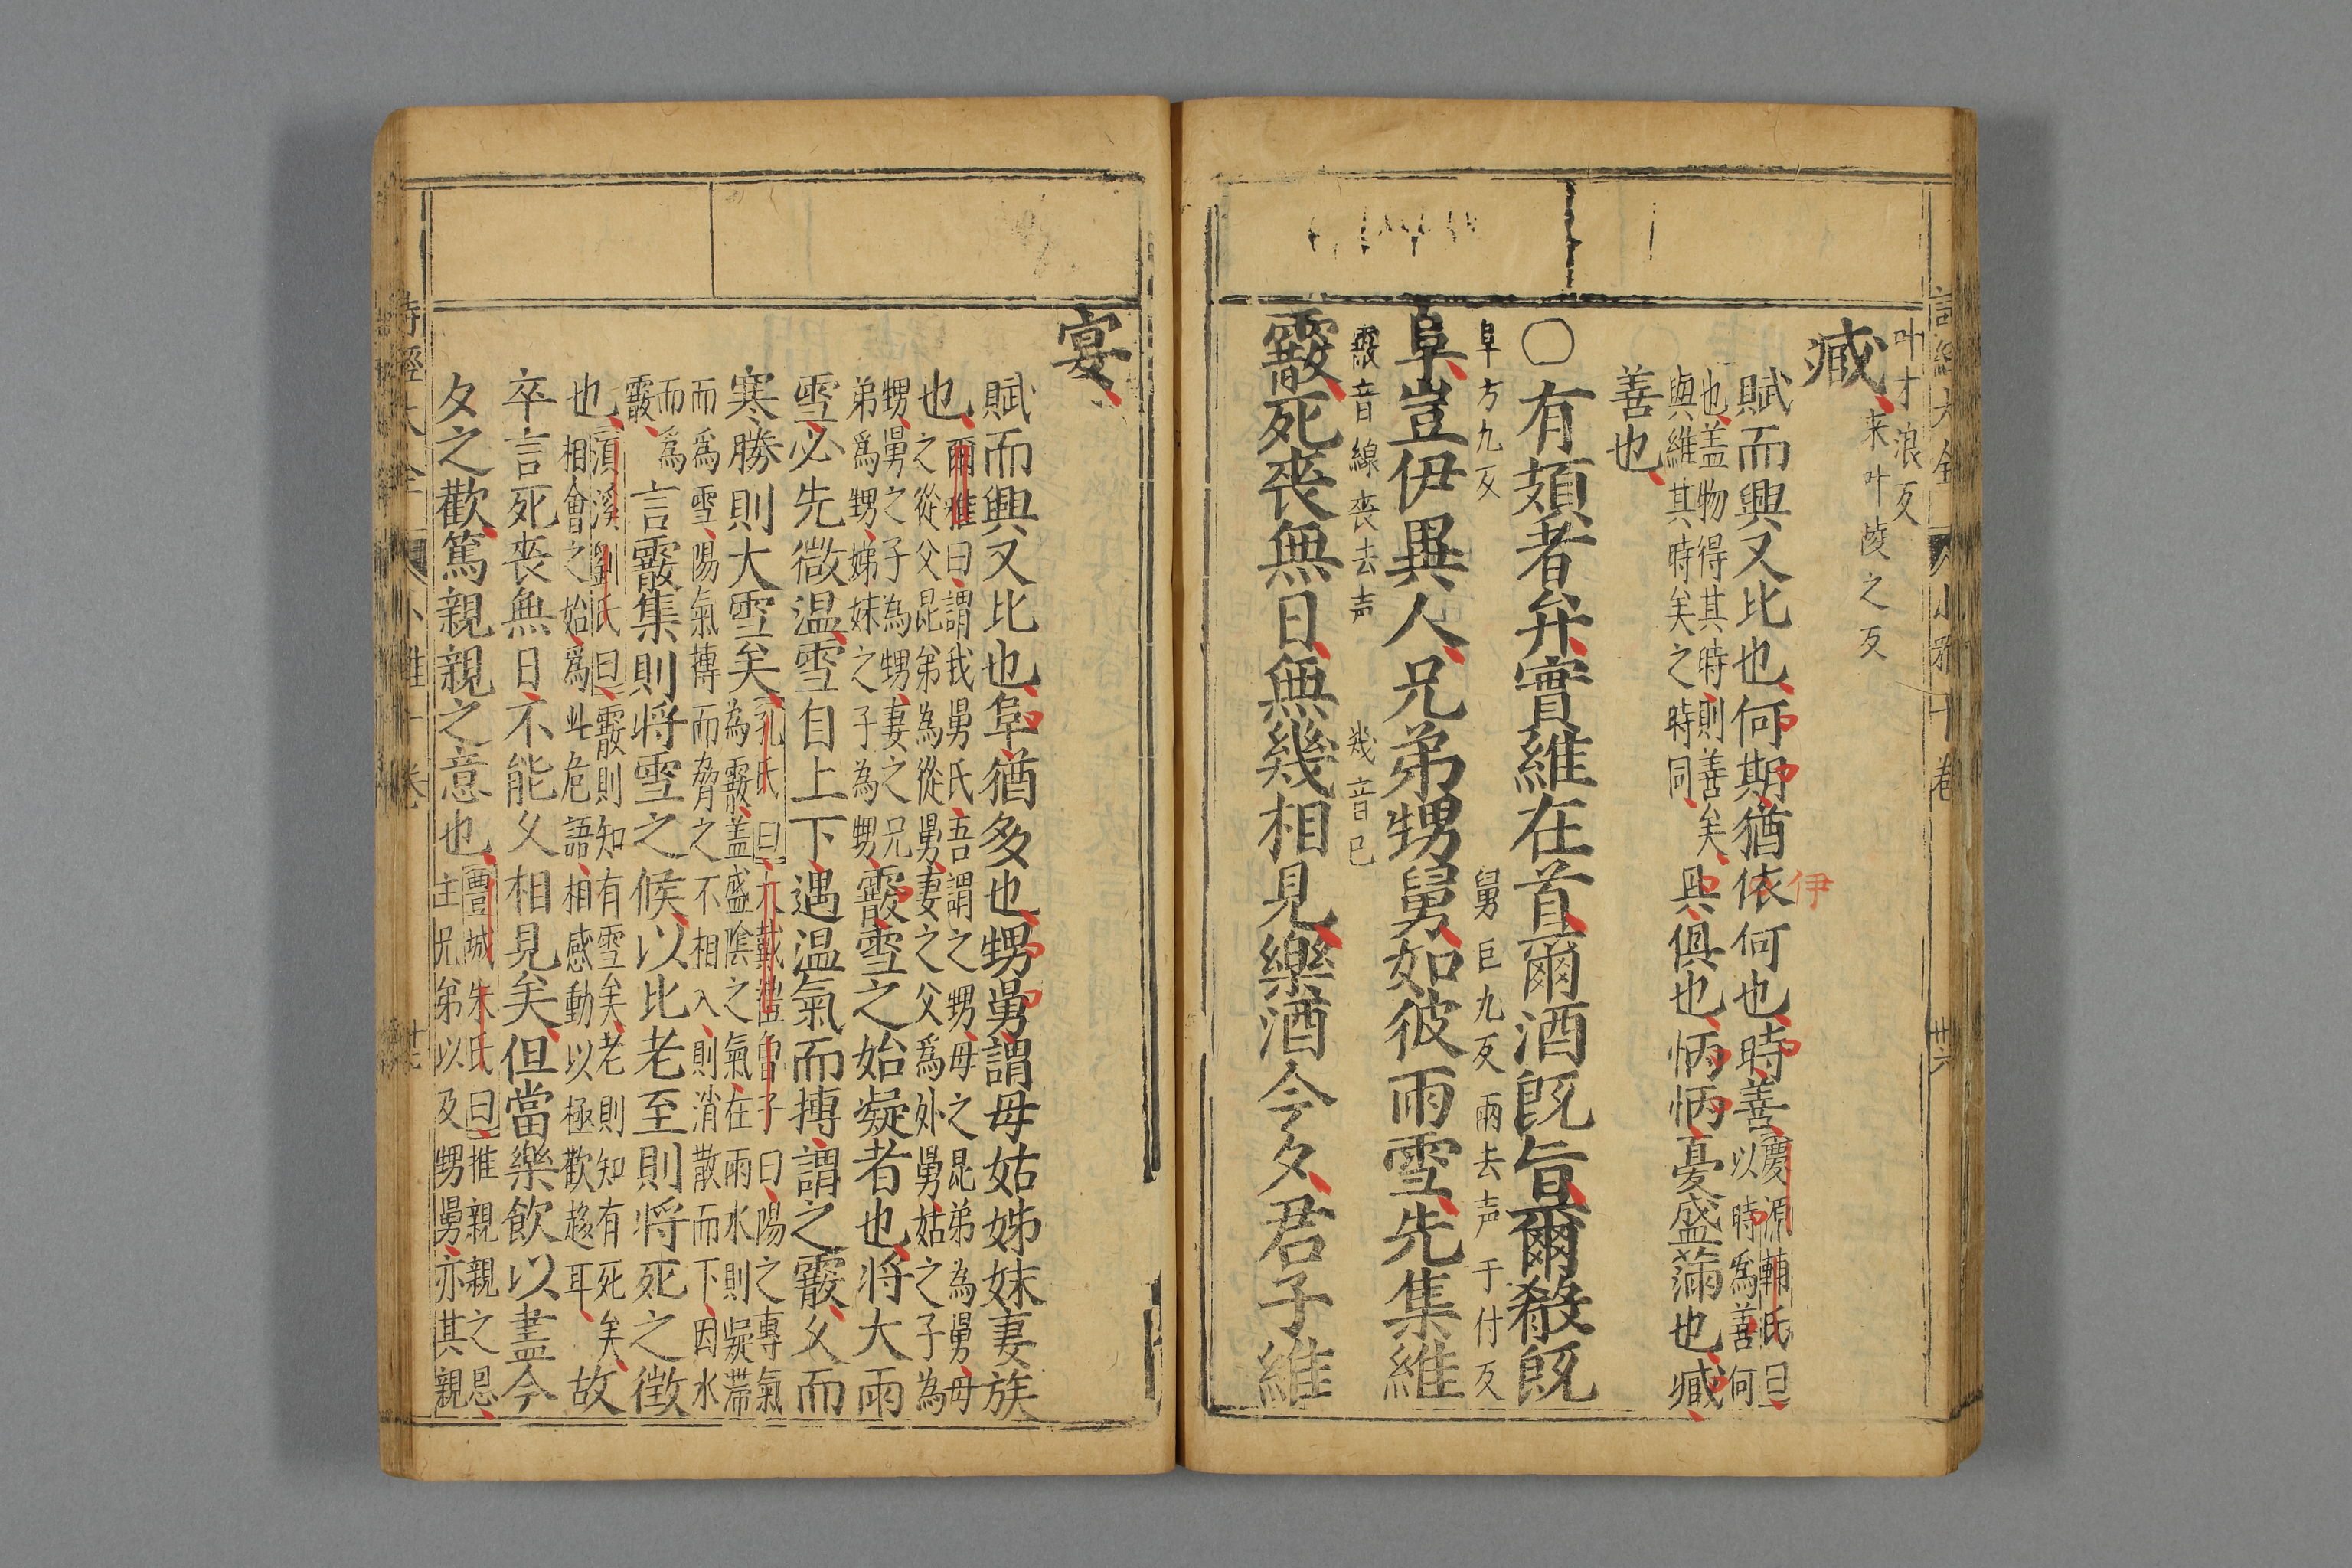 詩經大全 小雅十卷 廿六
叶才浪反
臧
来叶陵之反
賦而興又比也何期猶依何也時善
伊
慶源輔氏曰
以時為善何
也盖物得其時則善矣
與維其時矣之時同
具俱也怲怲憂盛滿也臧
善也
○有頍者弁實維在首爾酒既旨爾殽既
阜方九反
舅巨九反雨去声于付反
阜豈伊異人兄弟甥舅如彼雨雪先集維
霰音線丧去声
幾音已
霰死丧無日無幾相見樂酒今夕君子維
宴
賦而興又比也阜猶多也甥舅謂母姑姊妹妻族
也
爾雅曰謂我舅氏吾謂之甥母之昆弟為舅母
之從父昆弟為從舅妻之父為外舅姑之子為
甥舅之子為甥妻之兄
弟為甥娣妹之子為甥
霰雪之始凝者也将大雨
雪必先微温雪自上下遇温氣而摶謂之霰久而
寒勝則大雪矣
孔氏曰大戴禮曽子曰陽之專氣
為霰盖盛陰之氣在雨水則凝滞
而為雪陽氣摶而脅之不相入則消散而下因水
而為
霰
言霰集則将雪之候以比老至則将死之徵
也
湏溪劉氏曰霰則知有雪矣老則知有死矣
相會之始為此危語相感動以極歡趍耳
故
卒言死丧無日不能乆相見矣但當樂飲以盡今
夕之歡篤親親之意也
豊城朱氏曰推親親之恩
主兄弟以及甥舅亦其親
詩經大全 小雅十卷 廿七